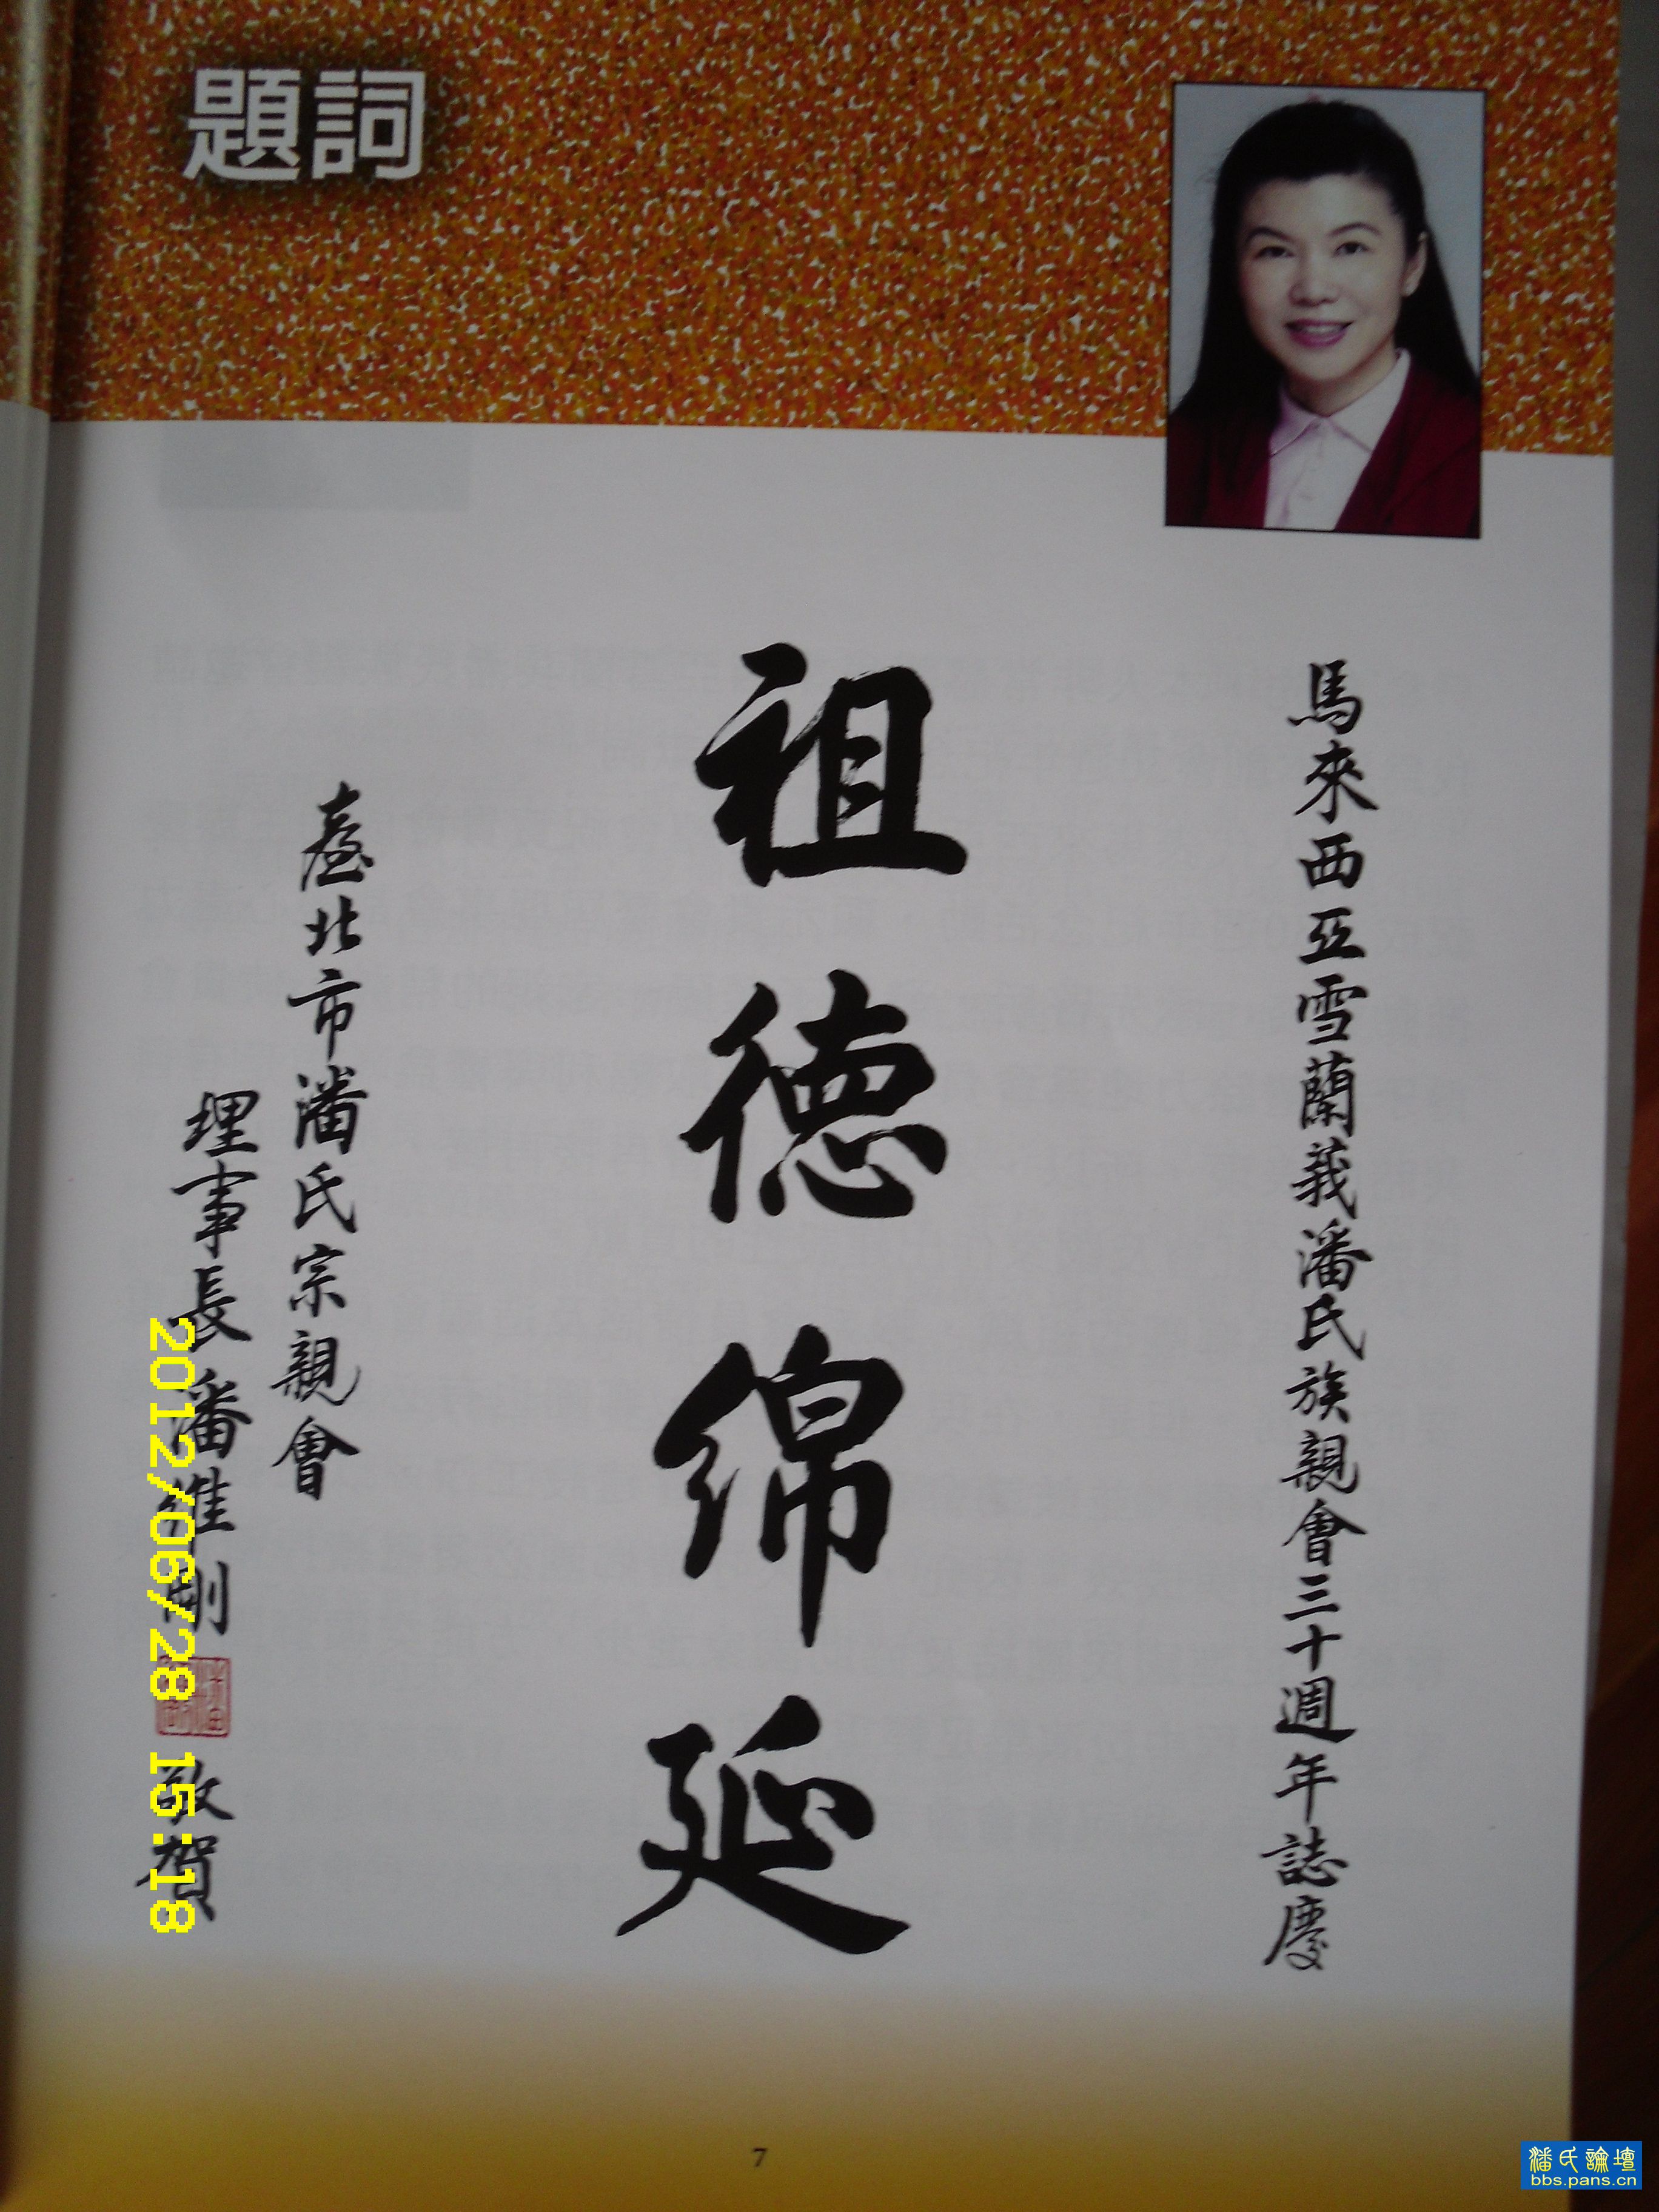 題詞
馬來西亞雪蘭莪潘氏族親會三十週年誌慶
祖德綿延
臺北市潘氏宗親會
理事長潘維剛 敬賀
2012/06/28 15:18
7
潘氏論壇
bbs.pans.cn